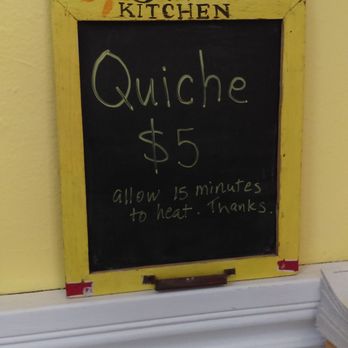 KITCHEN
Quiche
$5
allow 15 minutes
to heat. Thanks.